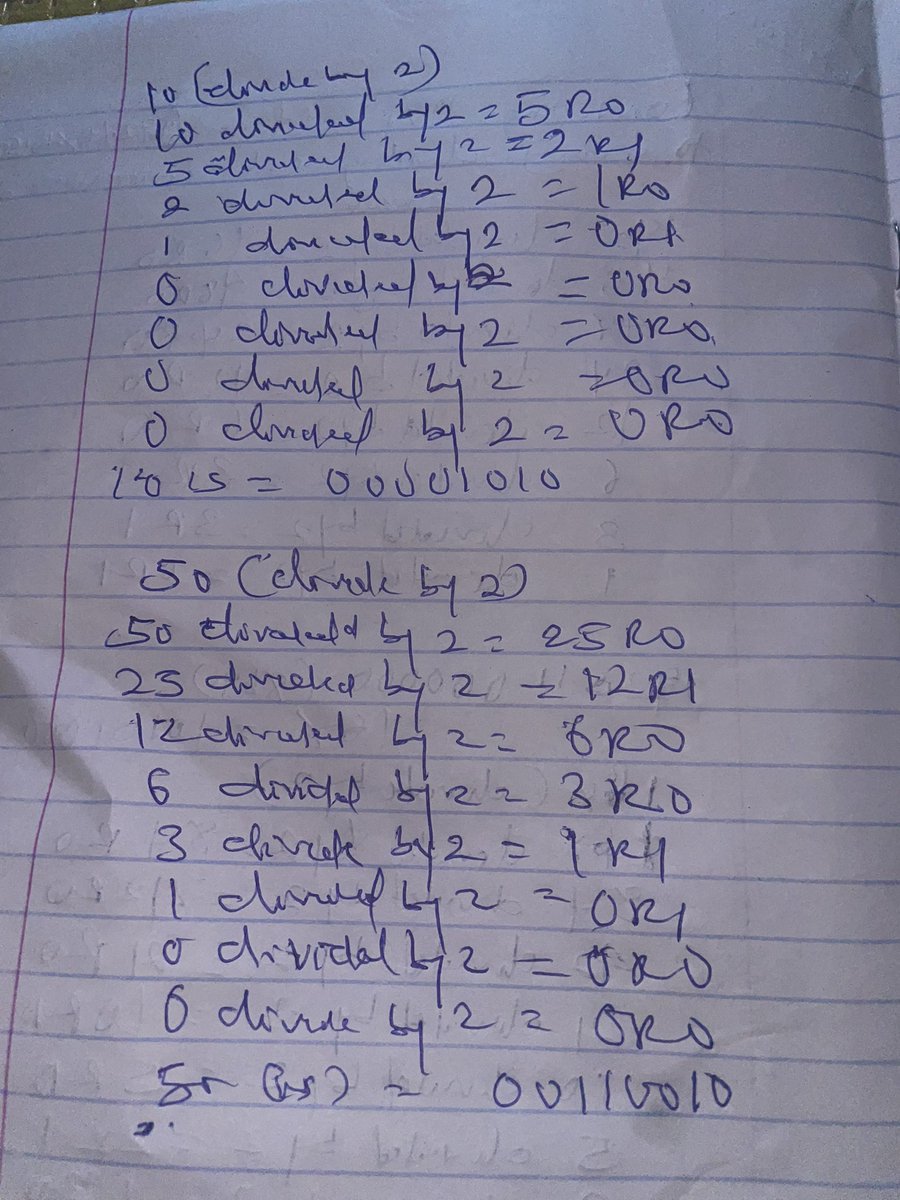 10 (divide by 2)
10 divided by 2 = 5 R0
5 divided by 2 = 2 R1
2 divided by 2 = 1R0
1 divided by 2 = 0R1
0 divided by 2 = 0R0
0 divided by 2 = 0R0
0 divided by 2 = 0R0
0 divided by 2 = 0R0
10 is = 00001010
50 (divide by 2)
50 divided by 2 = 25 R0
25 divided by 2 = 12 R1
12 divided by 2 = 6R0
6 divided by 2 = 3 R0
3 divide by 2 = 1 R1
1 divided by 2 = 0R1
0 divided by 2 = 0R0
0 divide by 2 = 0R0
50 (is) = 00110010